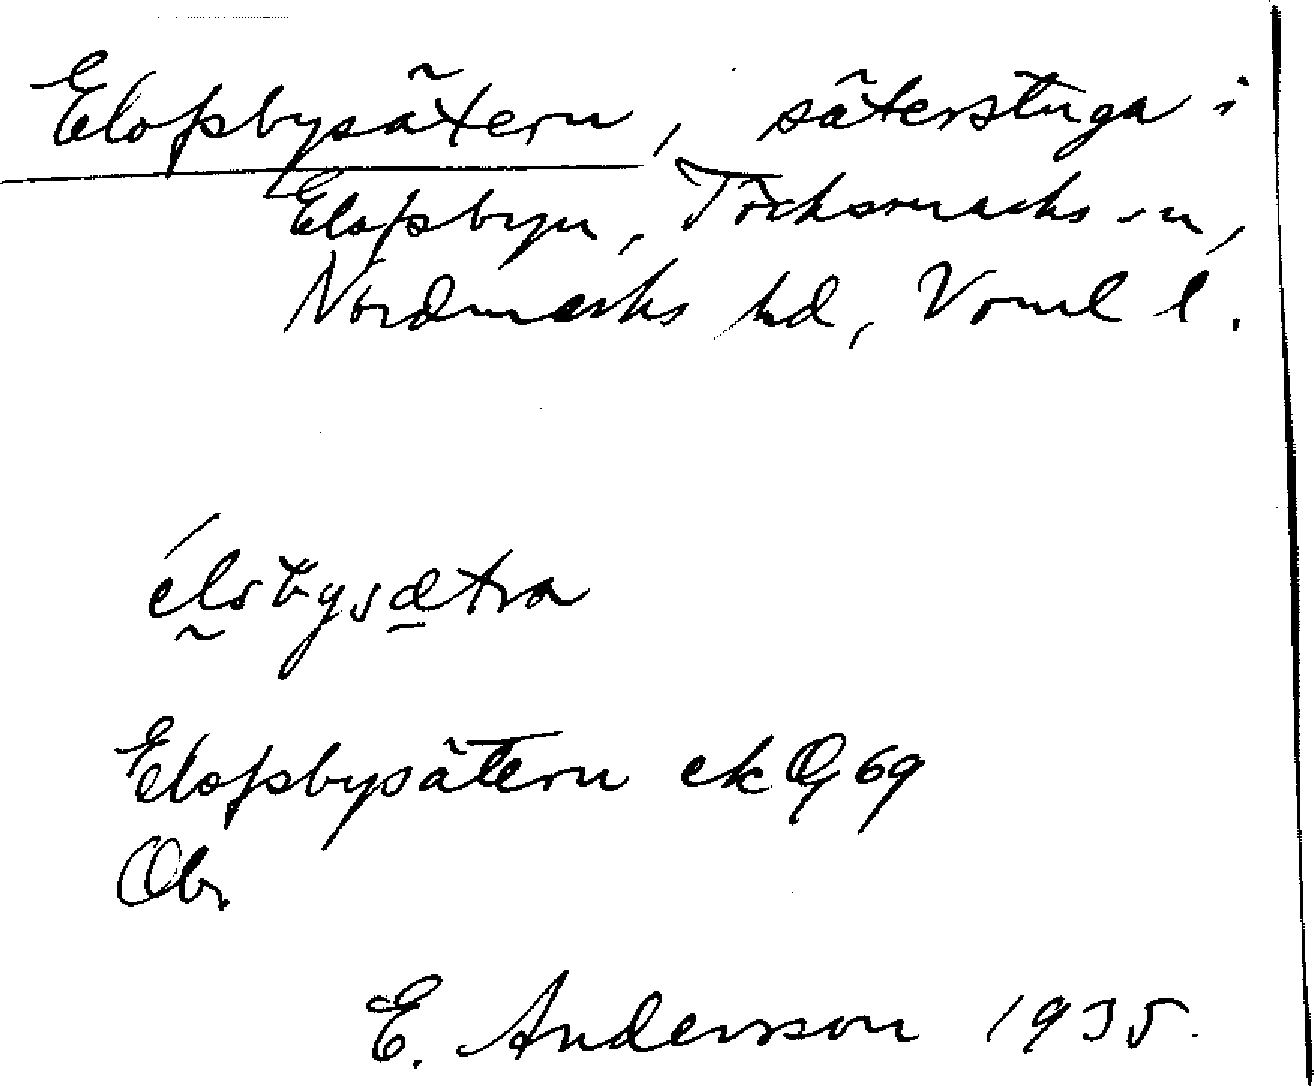 Elofsbysätern, säterstuga i
Elofsbyn, Töcksmarks sn,
Nordmarks hd, Vrml l.
élsbysætra
Elofsbysätern ek Q 69
Obr.
E. Andersson 1935.